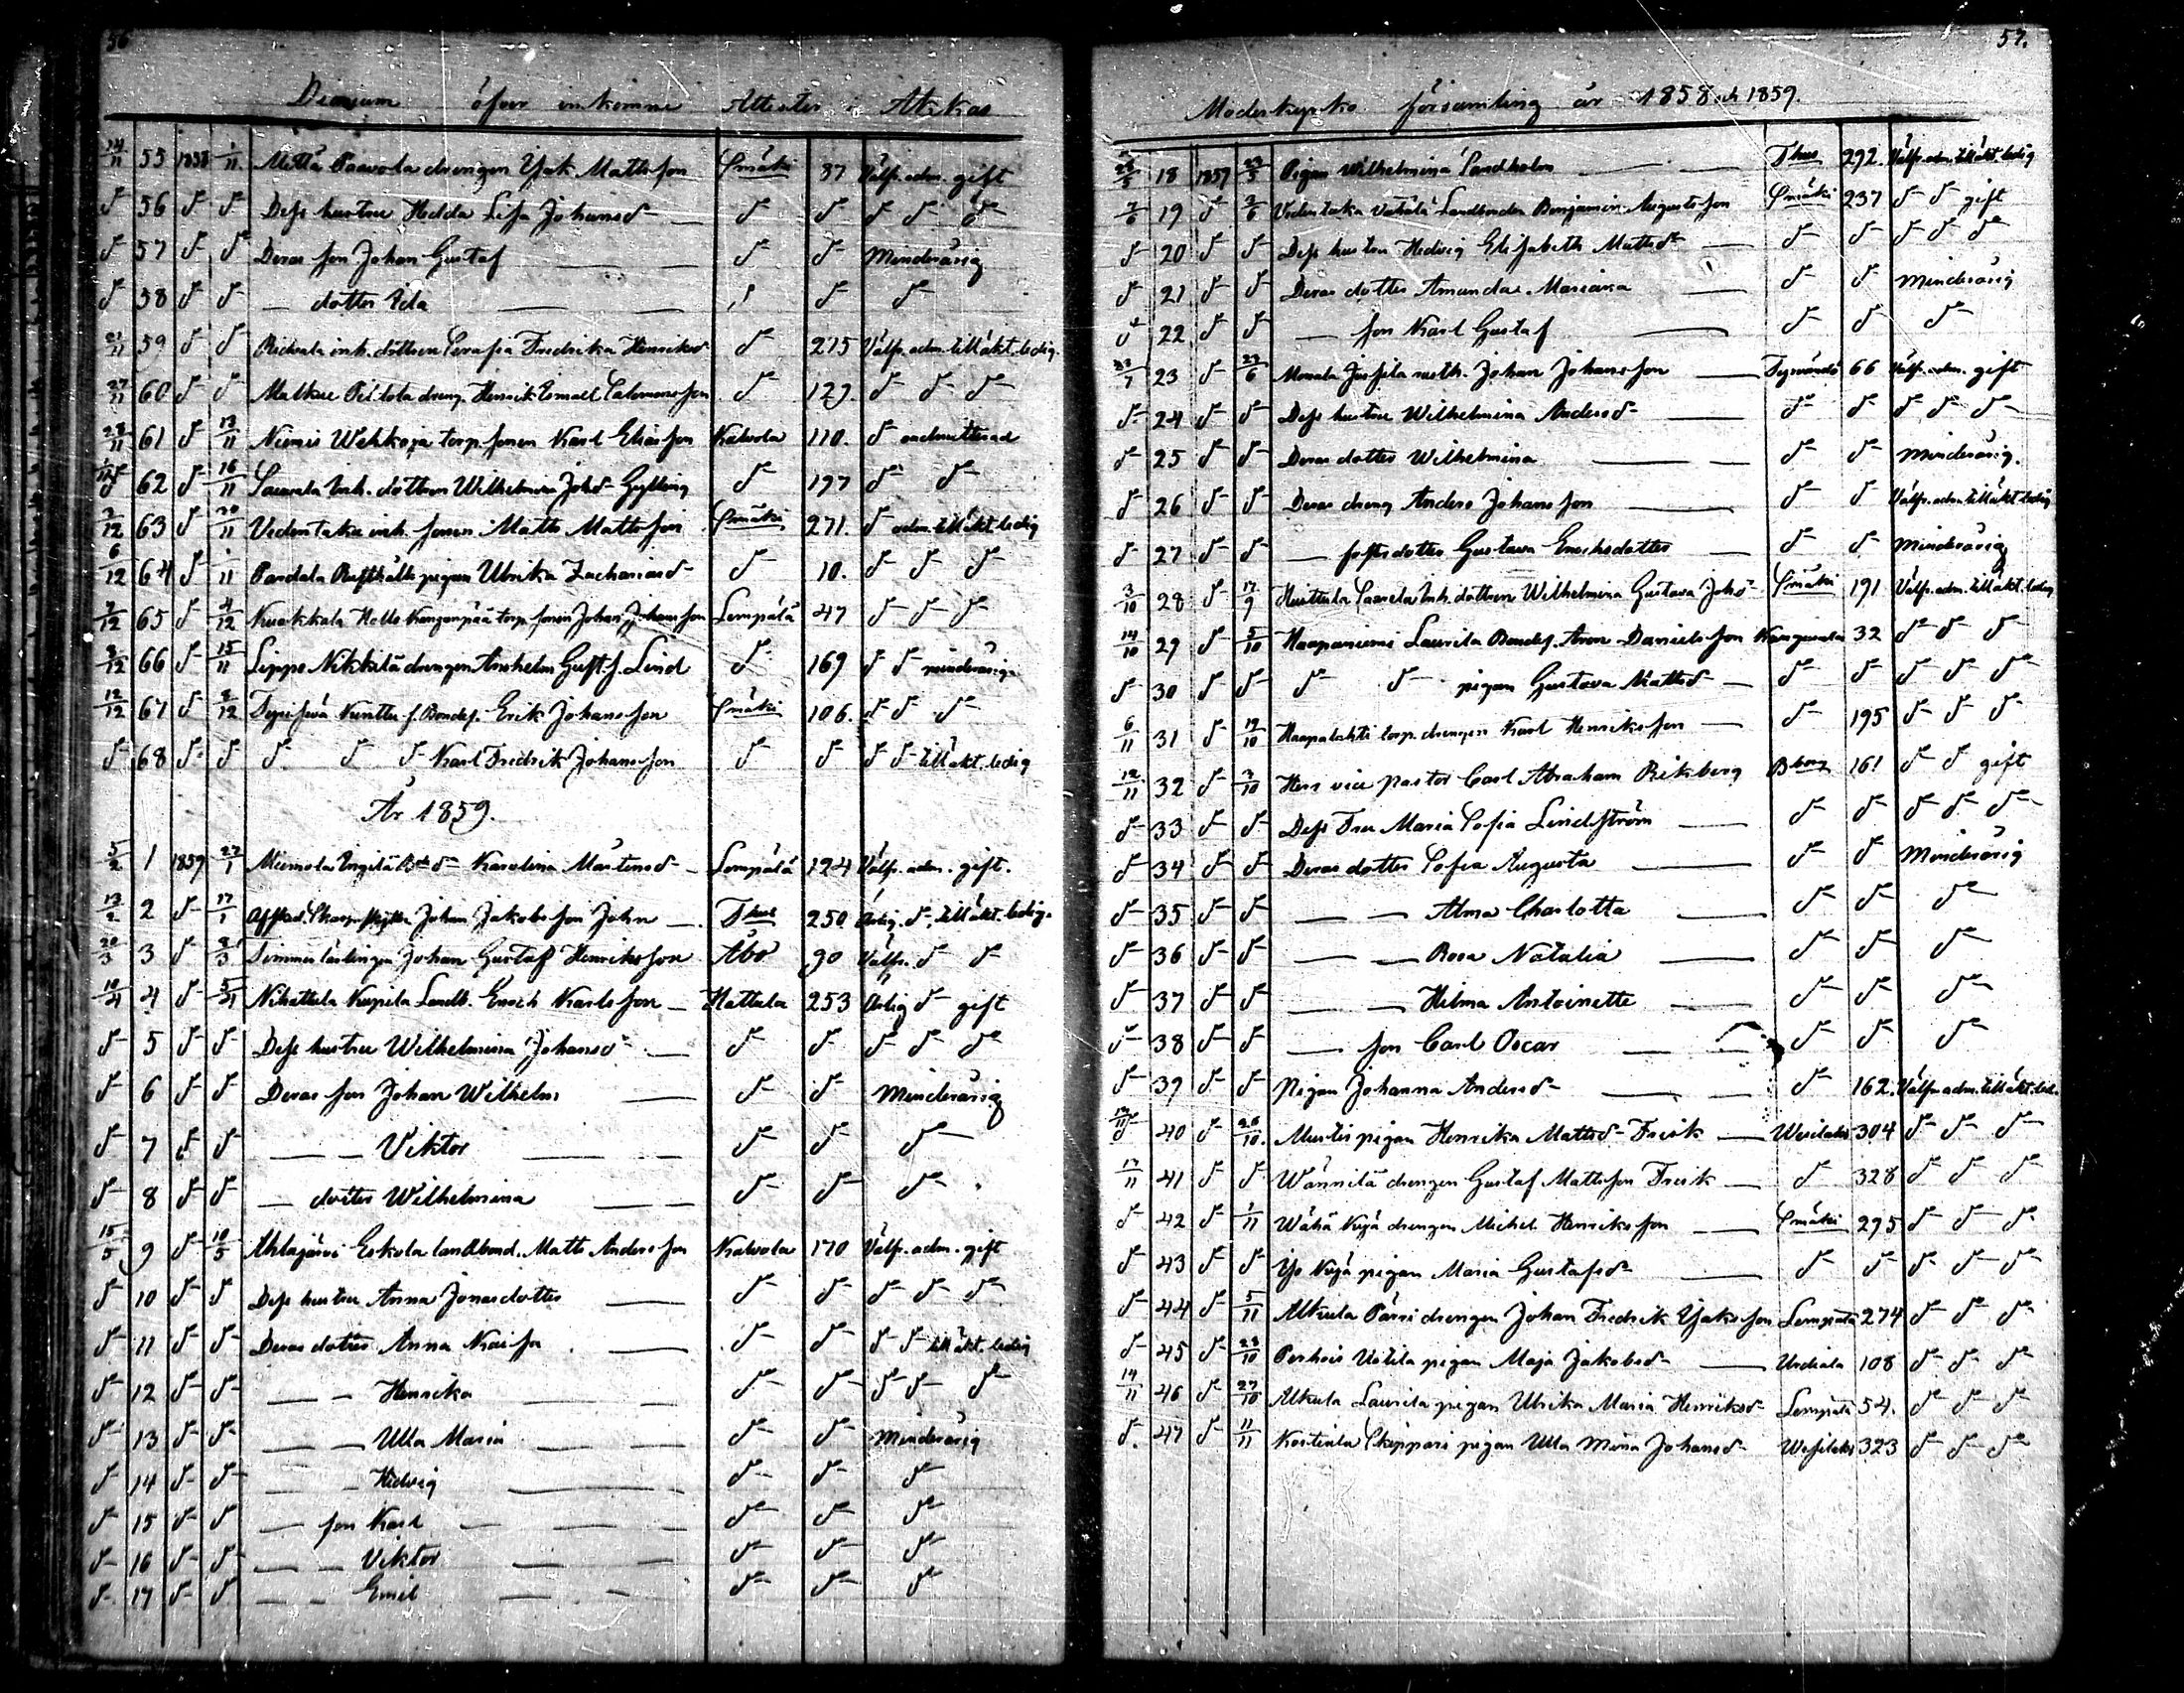 56
Diarium öfver inkomne Attester i Akkas
14/11 55 1858 1/11 Mettä Paavola drengen Isak Mattsson Smäki 87 Välfr. adm. gift
d 56 d d Dess hustru Hedda Lisa Johansd d d d d d
d 57 d d Deras son Johan Gustaf d d Minderårig
d 58 d d — dotter Eda d d d
21/11 59 d d inh. dottren Serafia Fredrika Henriksd d 275 Välfr. adm. tillåkt. ledig.
27/11 60 d d dreng. Henrik Salomonsson d 129. d d d
28/11 61 d 13/11 Niemis torp. sonen Karl Eliasson Kalvola 110. d oadmitterad
62 d 16/11 inh. dottren Wilhelmina Johsd Gylling d 197 d d
2/12 63 d 20/11 Vedentaka inh. sonen Matts Mattsson Smäki 271. d adm. tillåkt. ledig
6/12 64 d 11 pigan Ulrika Zachariasd d 10. d d d
7/12 65 d 4/12 Kuokkala torp. sonen Johan Johansson Lempälä 47 d d d
8/12 66 d 15/11 Lippo Nikkilä drengen Anshelm Gust.s. Lind d 169 d d minderårig.
12/12 67 d 2/12 Bondes. Erik Johansson Smäki 106. d d d
d 68 d d d d d Karl Fredrik Johansson d d d d tillåkt. ledig
År 1859.
5/2 1 1859 27/1 Karolina Mårtensd Lempälä 124 Välfr. adm. gift.
13/2 2 d 17/1 Afsked. Skarpskytten Johan Jakobsson John Thus 250 Ärlig. d tillåkt. ledig.
20/3 3 d 8/3 Timmerlärlingen Johan Gustaf Henriksson Åbo 90 Välfr. d d
10/4 4 d 5/4 Nihattula Kupila Landb. Enoch Karlsson Hattula 253 Ärlig d gift
d 5 d d Dess hustru Wilhelmina Johansd d d d d d
d 6 d d Deras son Johan Wilhelm d d Minderårig
d 7 d d — — Viktor d d d
d 8 d d — dotter Wilhelmina d d d
15/5 9 d 10/5 Ahlajärvi Eskola landbond. Matts Andersson Kalvola 170 Välfr. adm. gift
d 10 d d Dess hustru Anna Jonasdotter d d d d d
d 11 d d Deras dotter Anna Kaisa d d d d tillåkt. ledig
d 12 d d — — Henrika d d d d d
d 13 d d — — Ulla Maria d d Minderårig
d 14 d d — — Hedvig d d d
d 15 d d — son Karl d d d
d 16 d d — — Viktor d d d
d 17 d d — — Emil d d d
57.
Moderkyrko församling år 1858 och 1859.
18 1859 Pigan Wilhelmina Sandholm Thus 292. Välfr. adm. tillåkt. ledig
7/6 19 d 2/6 Vedentaka Landbonden Benjamin Augustsson Smäki 237 d d gift
d 20 d d Dess hustru Hedvig Elisabeth Mattsd d d d d d
d 21 d d Deras dotter Amanda Mariana d d Minderårig
d 22 d d — son Karl Gustaf d d d
23 d 27/6 Johan Johansson 66 Välfr. adm. gift
d 24 d d Dess hustru Wilhelmina Andersd d d d d d
d 25 d d Deras dotter Wilhelmina d d Minderårig.
d 26 d d Deras dreng Anders Johansson d d Välfr. adm. tillåkt. ledig
d 27 d d — fosterdotter Gustava Enochsdotter d d Minderårig
3/10 28 d 17/9 Huittula inh. dottren Wilhelmina Gustava Johsd Smäki 191 Välfr. adm. tillåkt. ledig
14/10 29 d 5/10 Haapaniemi Laurila Bondes. Aron Danielsson Kangasala 32 d d d
d 30 d d d d pigan Gustava Mattsd d d d d d
6/11 31 d 19/10 Haapalahti torp. drengen Karl Henriksson d 195 d d d
12/11 32 d 2/10 Herr vice pastor Carl Abraham Rikberg Bborg 161 d d gift
d 33 d d Dess Fru Maria Sofia Lindström d d d d d
d 34 d d Deras dotter Sofia Augusta d d Minderårig
d 35 d d — — Alma Charlotta d d d
d 36 d d — — Rosa Natalia d d d
d 37 d d — — Hilma Antoinette d d d
d 38 d d — son Carl Oscar d d d
d 39 d d Pigan Johanna Andersd d 162. Välfr. adm. tillåkt. led.
40 d 26/10. pigan Henrika Mattsd Frisk Wesilaks 304 d d d
17/11 41 d d Wännilä drengen Gustaf Mattsson Frisk d 328 d d d
d 42 d 1/11 Wähä Kujä drengen Michel Henriksson Smäki 295 d d d
d 43 d d Yli Kujä pigan Maria Gustafsd d d d d d
d 44 d 5/11 Alkula Pärri drengen Johan Fredrik Isaksson Lempälä 274 d d d
d 45 d 28/10 Uotila pigan Maja Jakobsd Urdiala 108 d d d
19/11 46 d 27/10 Alkula Laurila pigan Ulrika Maria Henriksd Lempälä 54. d d d
d. 47 d 11/11 Kostiala Skippari pigan Ulla Mina Johansd Wesilaks 323 d d d